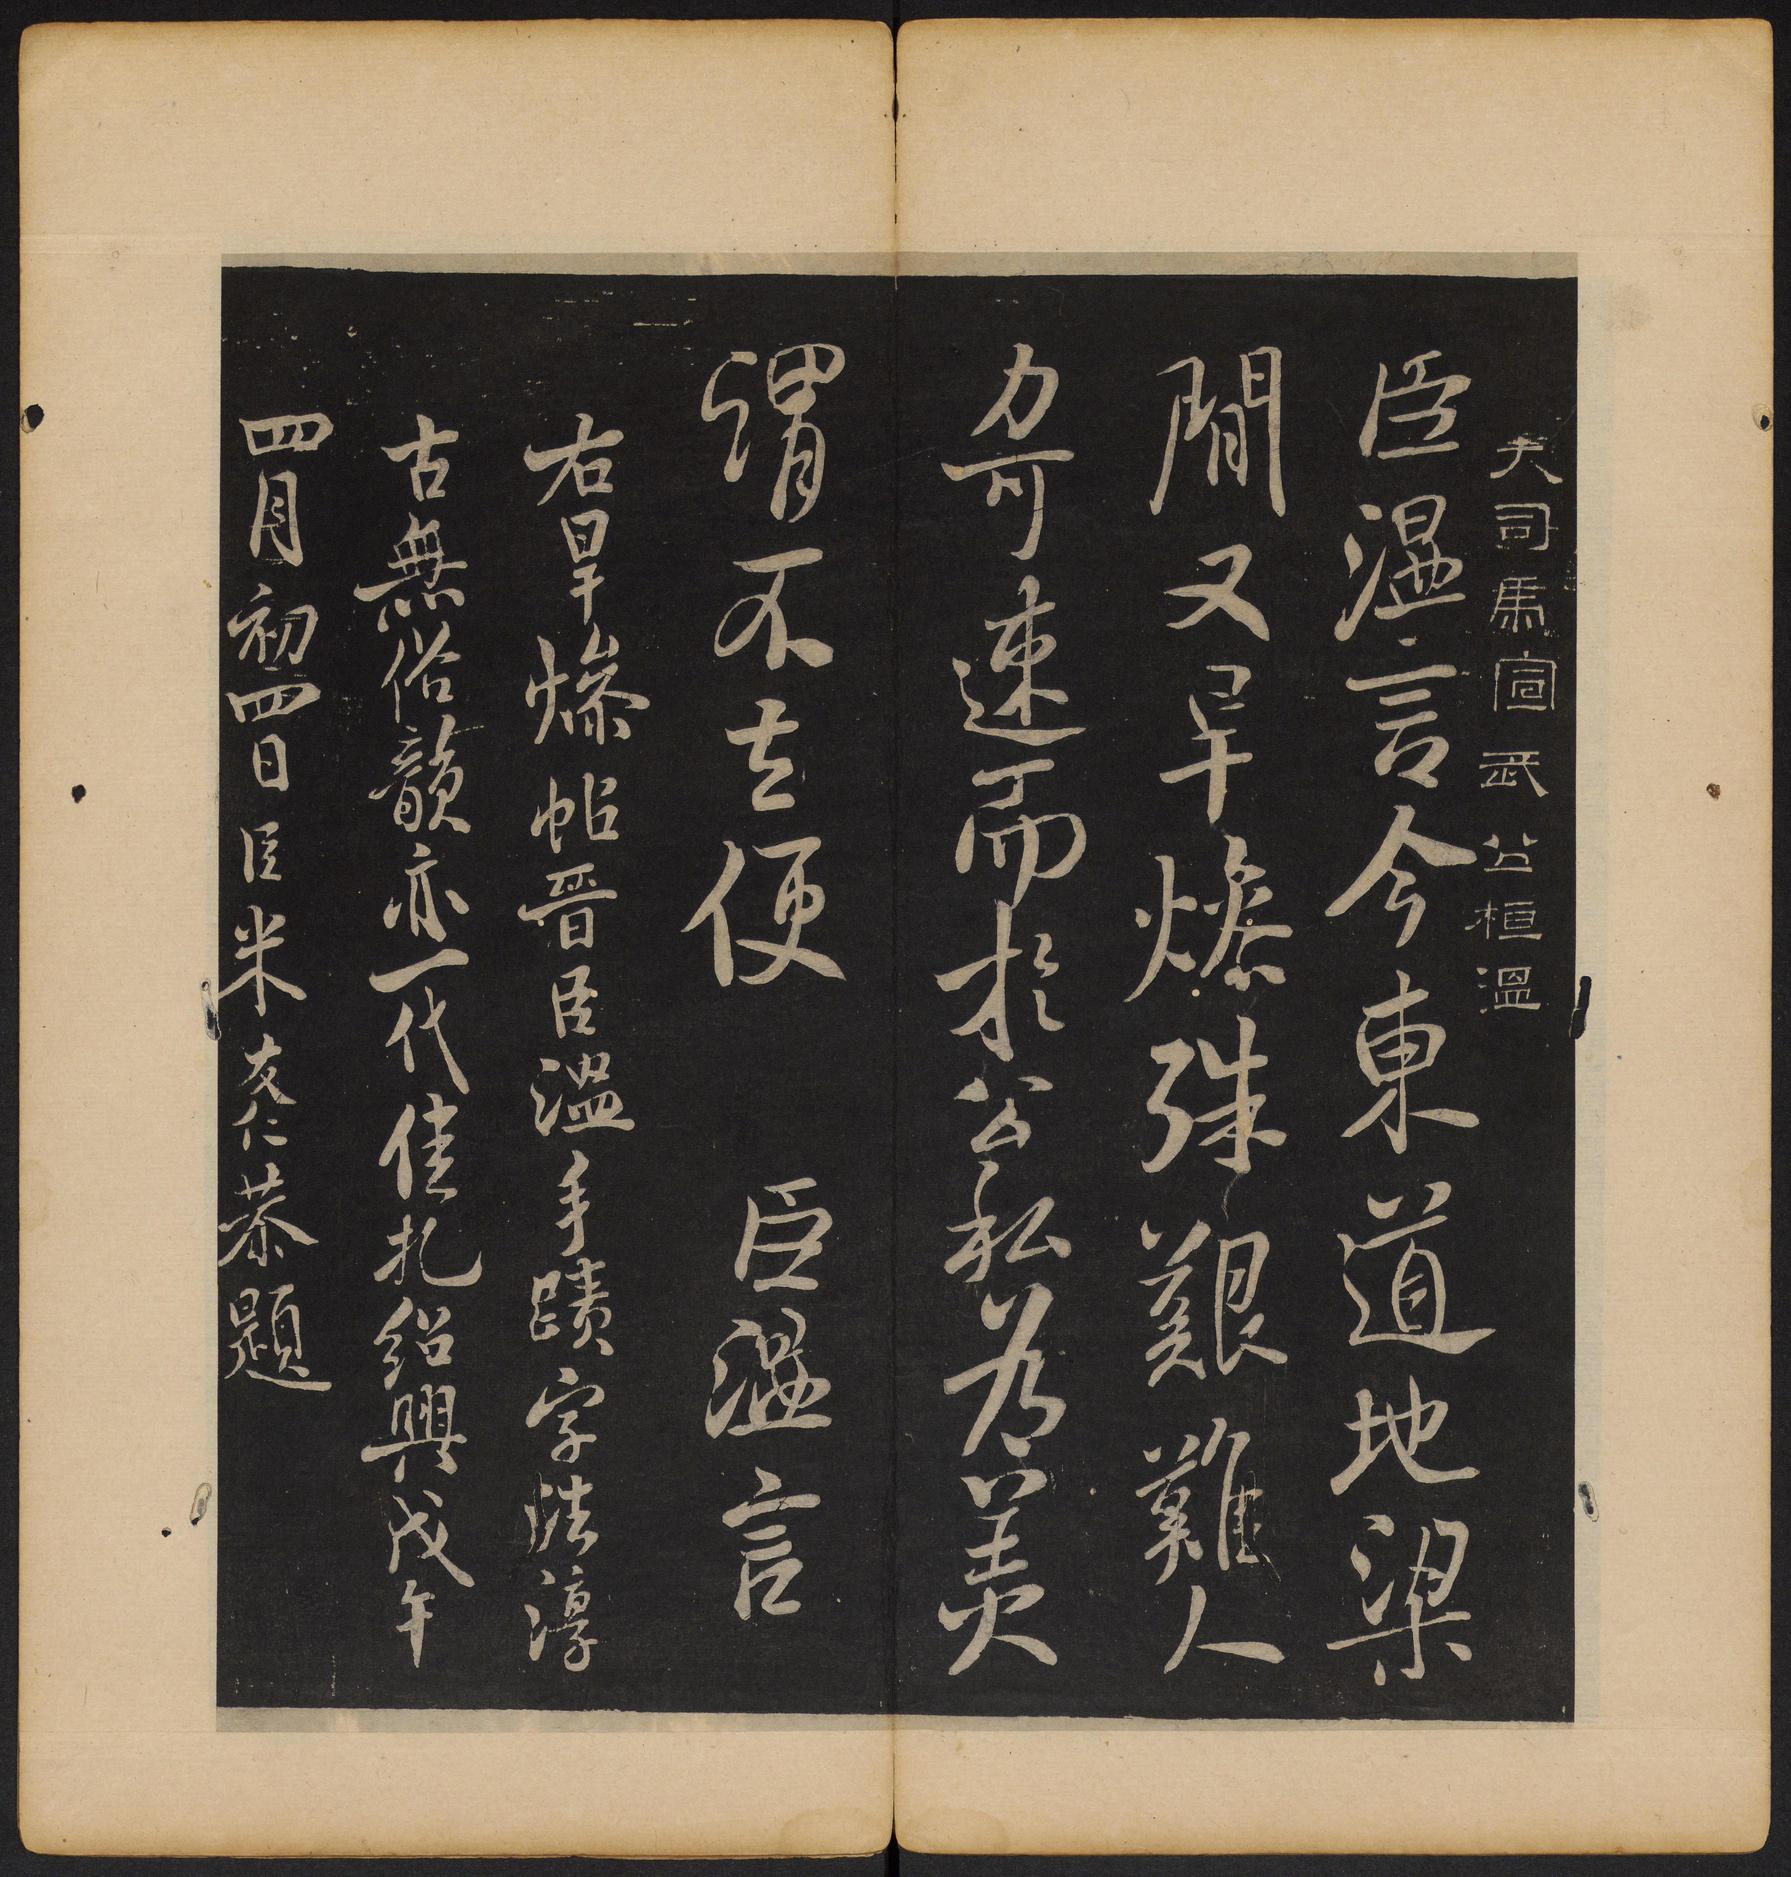 大司馬宣武公桓溫
臣溫言今東道地梁
間又旱燥殊艱難人
力可速而於公私為美
謂不去便 臣溫言
右旱燥帖晉臣溫手蹟字法淳
古無俗韻亦一代佳札紹興戊午
四月初四日臣米友仁恭題